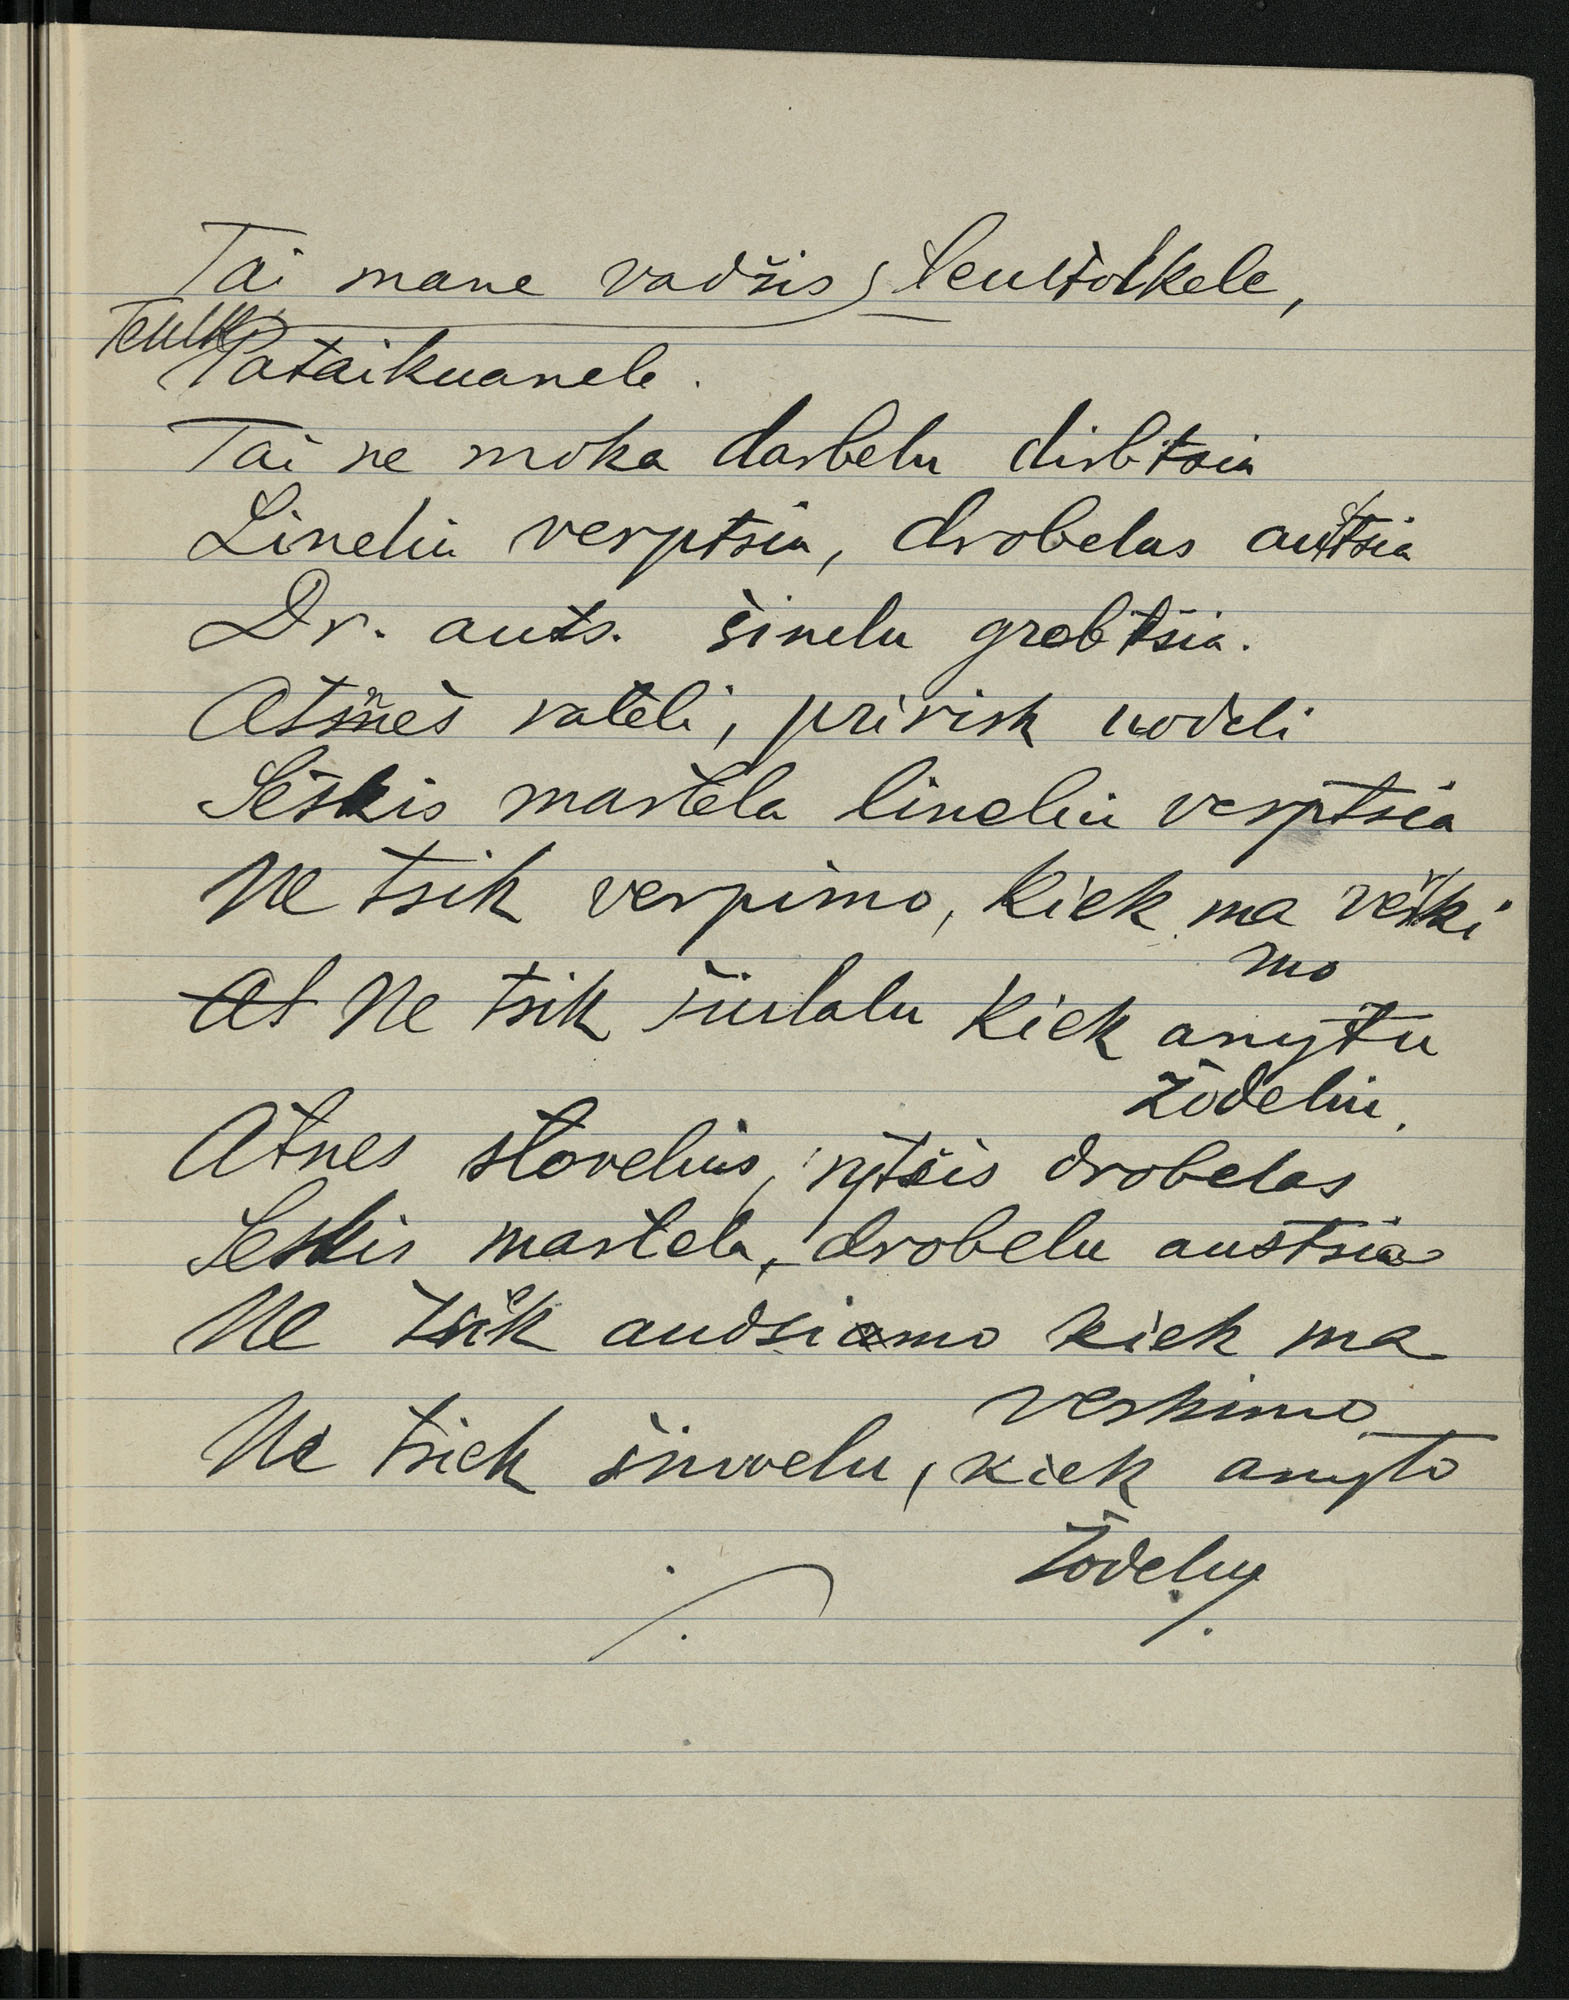 Tai mane vadžis
Pataikuanele.
Tai ne moka darbelu dirbtsia
Lineliu verptsia, drobelas austsia
Dr. auts. šinelu grebtsia.
Atneš rateli, pririsk uodeli
Seskis martela lineliu verptsia
Ne tsik verpimo, kiek ma verki
mo
At Ne tsik šiulalu kiek anytu
žodeliu.
Atnes stovelius, rytšis drobelas
Seskis martela, drobelu austsia
Ne tsiek audsiamo kiek ma
verkimo
Ne tsiek šivvelu, kiek anyto
Žodeliu